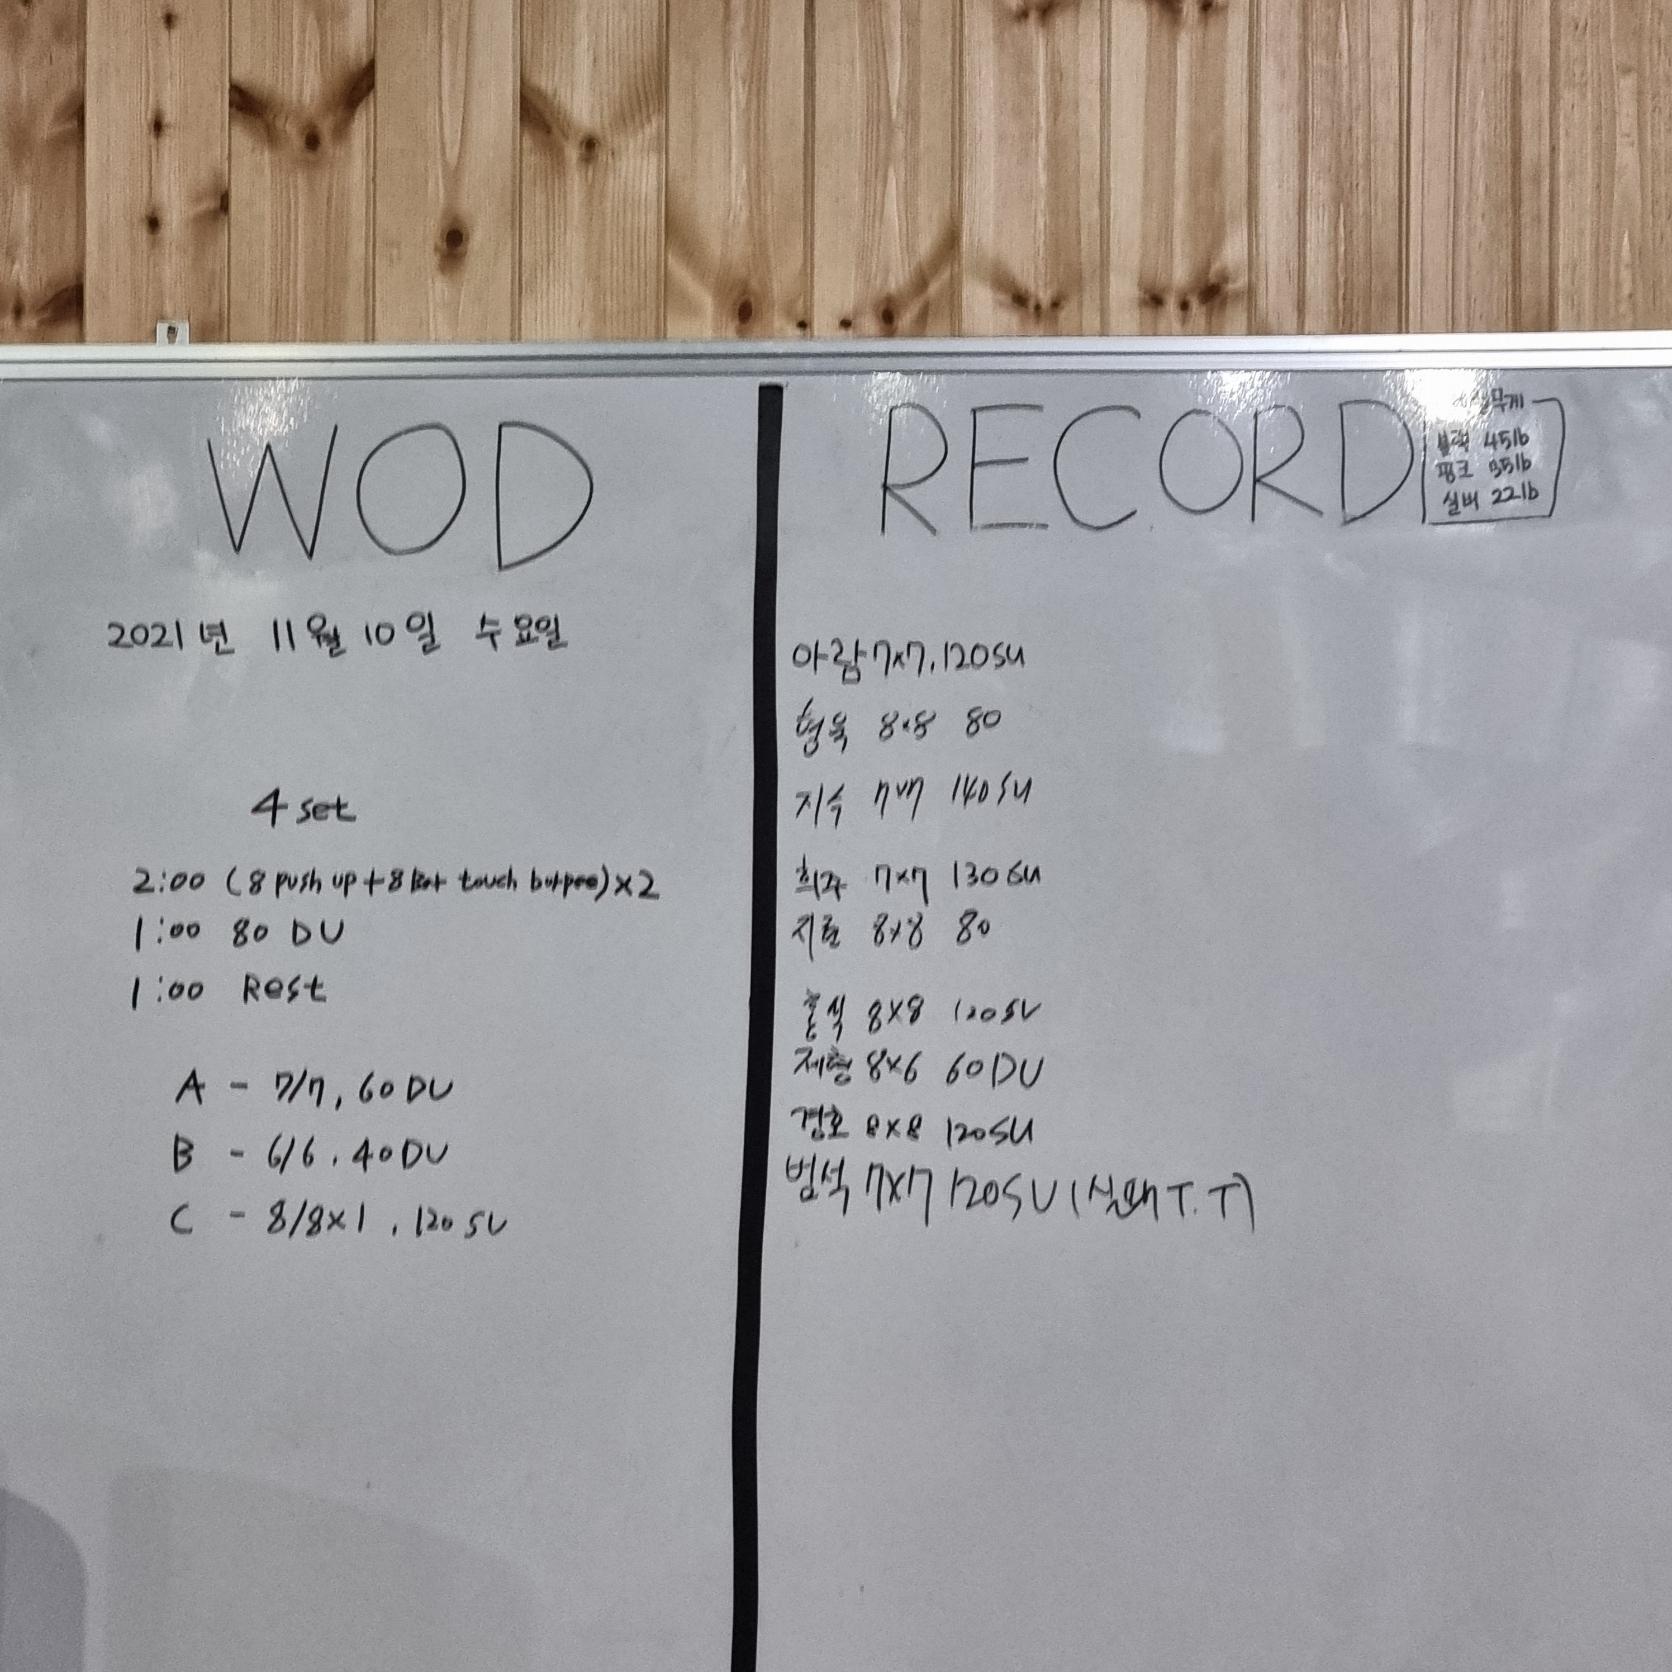 WOD
2021년 11월 10일 수요일
4 set
2:00 (8 push up + 8 touch burpee) x2
1:00 80 DU
1:00 Rest
A - 7/7, 60 DU
B - 6/6, 40 DU
C - 8/8x1, 120 SU
RECORD
무게
블랙 45lb
핑크 35lb
실버 22lb
아람 7x7, 120SU
형욱 8x8 80
지수 7x7 140SU
희주 7x7 130SU
8x8 80
8x8 120SU
제형 8x6 60DU
경호 8x8 120SU
범석 7x7 120SU (실패 T.T)